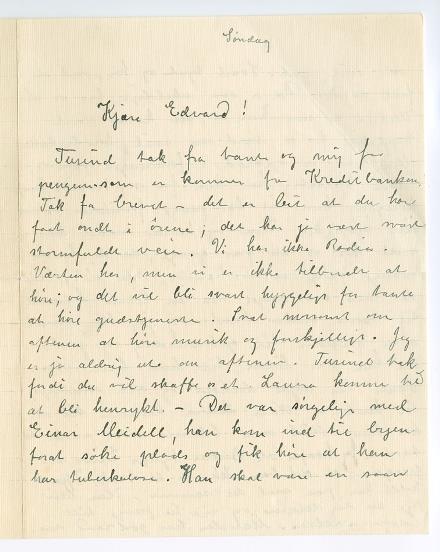 Søndag
Kjære Edvard!
Tusind tak fra tante og mig for
pengene som er kommet fra Kreditbanken.
Tak for brevet – det er leit at du har
faat ondt i ørene; det har jo været svært
stormfuldt veir. Vi har ikke Radio.
Værten har, men vi er ikke tilbudt at
høre; og det vil bli svært hyggelig for tante
at høre gudstjeneste. Svært morsomt om
aftenen at høre musik og forskjellig. Jeg
er jo aldrig ute om aftenen. Tusind tak
fordi du vil skaffe os et. Laura kommer til
at bli henrykt. – Det var sørgelig med
Einar Meidell, han kom ind til byen
forat søke plads og fik høre at han
har tuberkulose. Han skal være en saan